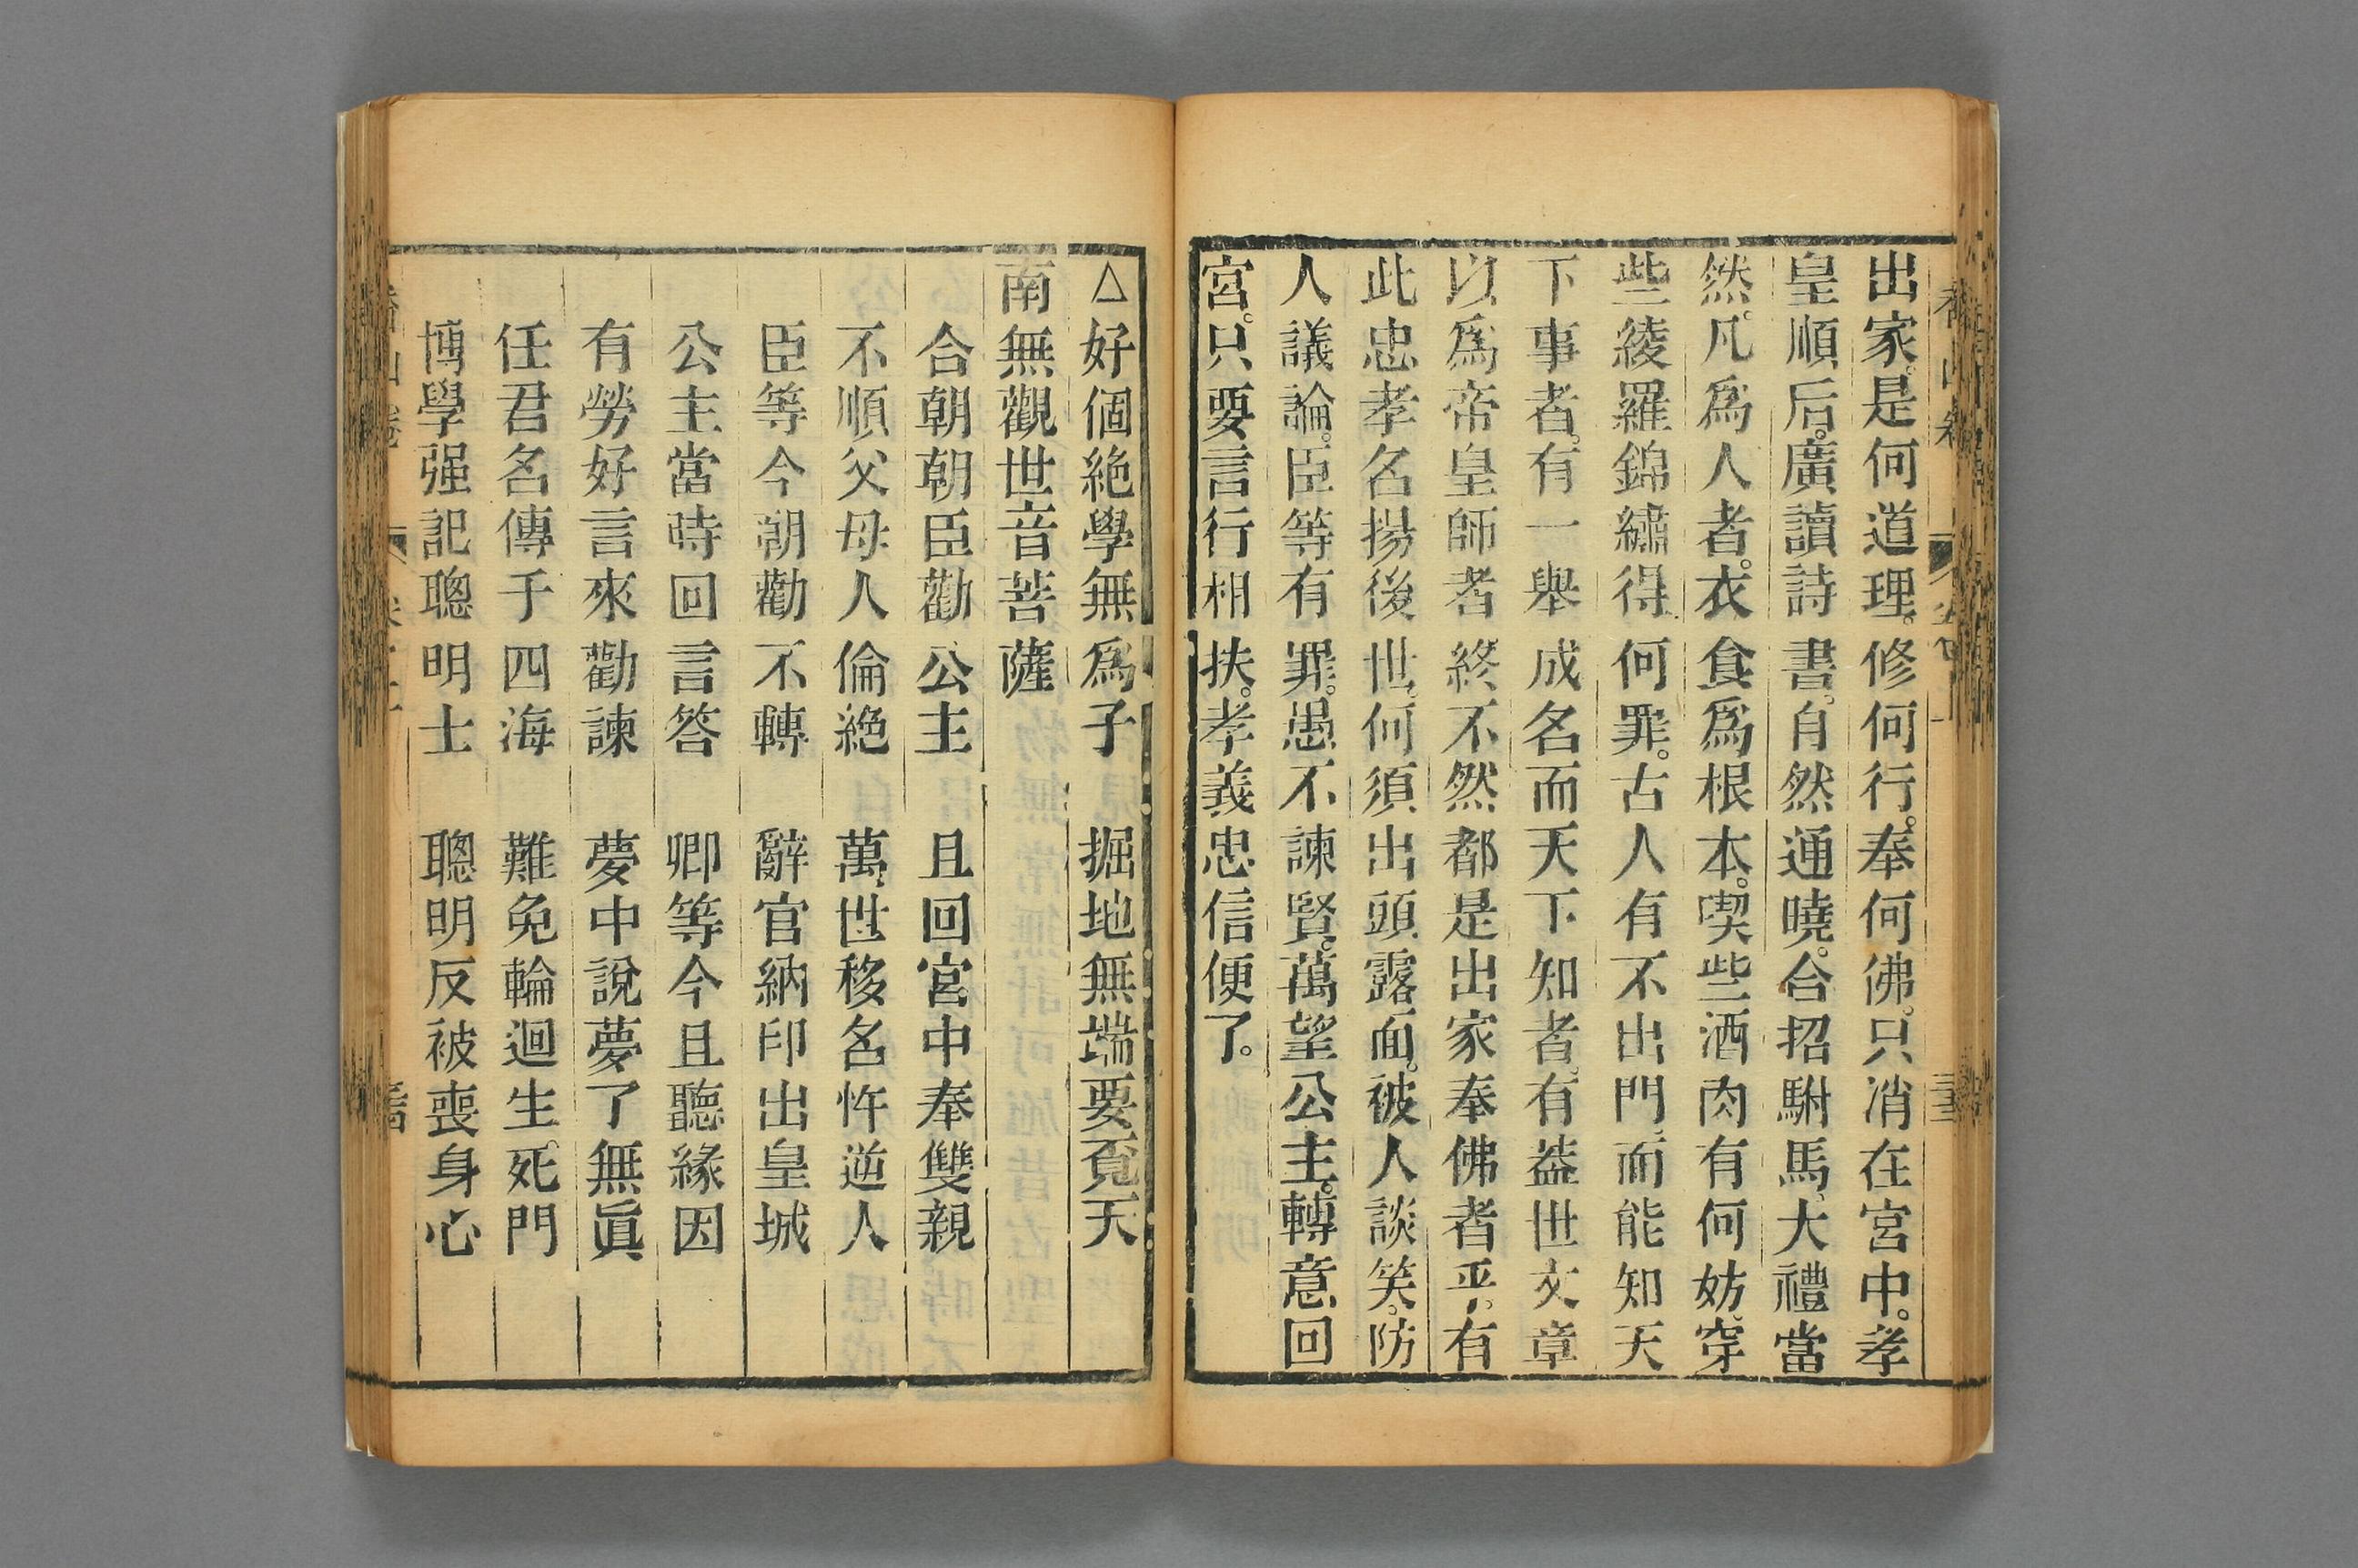 出家。是何道理。修何行。奉何佛。只消在宮中。孝
皇順后。廣讀詩書。自然通曉。合招駙馬、大禮當
然。凡爲人者。衣食爲根本。喫些酒肉有何妨、穿
些綾羅錦繡得何罪。古人有不出門、而能知天
下事者。有一舉成名而天下知者、有葢世文章
以爲帝皇師者、終不然都是出家奉佛者乎。有
此忠孝名揚後世、何須出頭露面。被人談笑。防
人議論。臣等有罪。愚不諫賢。萬望公主。轉意回
宮。只要言行相扶。孝義忠信便了。
△好個絶學無爲子　掘地無端要覔天
南無觀世音菩薩
合朝朝臣勸公主　且回宮中奉雙親
不順父母人倫絶　萬世移名忤逆人
臣等今朝勸不轉　辭官納印出皇城
公主當時回言答　卿等今且聽緣因
有勞好言來勸諫　夢中說夢了無眞
任君名傳于四海　難免輪迴生死門
博學强記聰明士　聰明反被喪身心